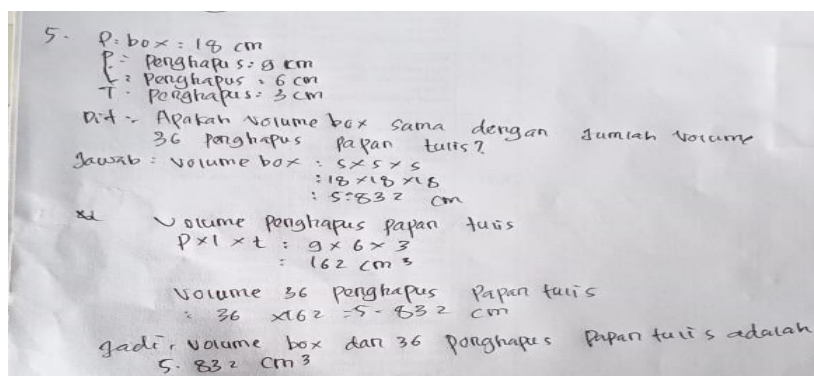 5. P. box : 18 cm
P = Penghapus : 9 cm
L : Penghapus : 6 cm
T : Penghapus : 3 cm
Dit : Apakah volume box sama dengan Jumlah volume
36 Penghapus Papan tulis?
Jawab : volume box : s x s x s
: 18 x 18 x 18
: 5.832 cm
Volume Penghapus Papan tulis
P x l x t : 9 x 6 x 3
: 162 cm³
Volume 36 Penghapus Papan tulis
: 36 x 162 = 5.832 cm
Jadi, Volume box dan 36 Penghapus Papan tulis adalah
5.832 cm³